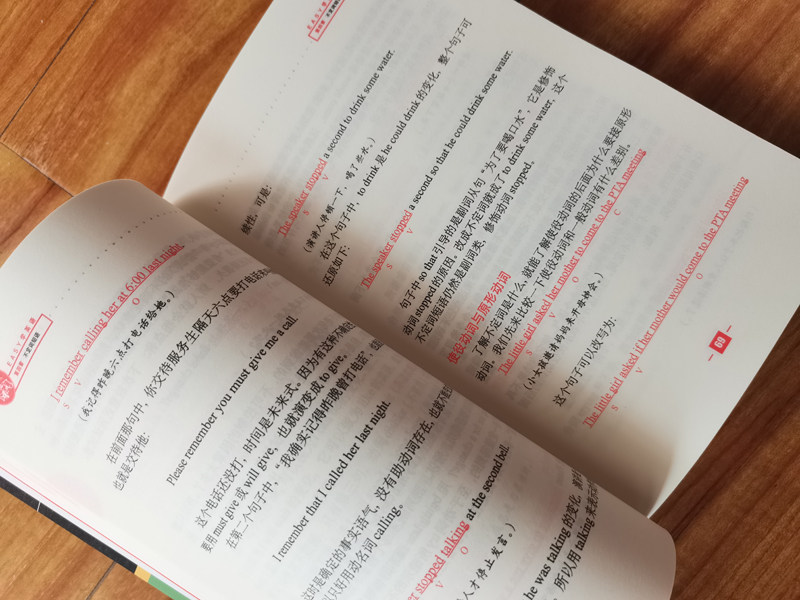 I remember calling her at 6:00 last night.
S V O
(我记得昨晚六点打电话给她。)
在前面那句中，你交待服务生隔天六点要打电话
也就是交待他：
Please remember you must give me a call.
这个电话还没打，时间是未来式。因为有这种不确
要用 must give 或 will give，也就演变成 to give，
在第二个句子中，“我确实记得昨晚曾打电话”，
I remember that I called her last night.
这时是确定的事实语气，没有助动词存在，也就不
只好用动名词 calling。
er stopped talking at the second bell.
V O
人才停止发言。)
he was talking 的变化，
所以用 talking 来
续性，可是：
The speaker stopped a second to drink some water.
S V
(演讲人停顿一下，喝了些水。)
在这个句子中，to drink 是 he could drink 的变化，整个句子可
还原如下：
The speaker stopped a second so that he could drink some water.
S V
句子中 so that 引导的是副词从句“为了要喝口水”，它是修饰
动词 stopped 的原因。改成不定词就成了 to drink some water，这个
不定词短语仍然是副词类，修饰动词 stopped。
使役动词与原形动词
了解不定词是什么，就能了解使役动词的后面为什么要接原形
动词。我们先来比较一下使役动词和一般动词有什么差别。
The little girl asked her mother to come to the PTA meeting
S V O C
(小女孩邀请妈妈来开母姊会。)
这个句子可以改写为：
The little girl asked if her mother would come to the PTA meeting
S V O
69